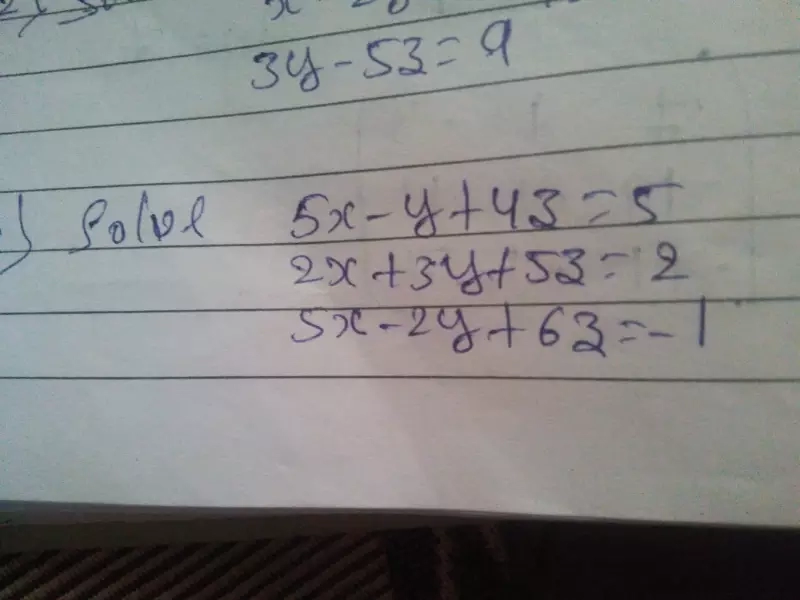 3y - 5z = 9
) Solve 5x - y + 4z = 5
2x + 3y + 5z = 2
5x - 2y + 6z = -1